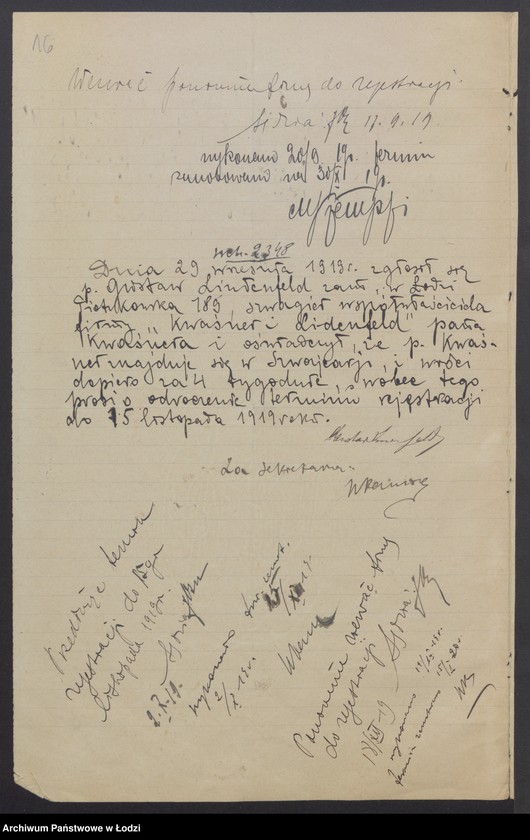 16
Wezwać ponownie firmę do rejestracji.
Sędzia 17.9.19
wykonano 20/9 19r. termin
zanotowano na 30/X 19r.
MStempfi
nch. 2348
Dnia 29 września 1919r. zgłosił się
p. Gustaw Lindenfeld zam. w Łodzi
Piotrkowska 189, szwagier współwłaściciela
firmy „Kwaśner i Lidenfeld" pana
Kwaśnera i oświadczył, że p. Kwaś-
ner znajduje się w Szwajcarji, i wróci
dopiero za 4 tygodnie, wobec tego
prosi o odroczenie terminu rejestracji
do 15 listopada 1919 roku.
Za Sekretarza
Przedłużyć termin
rejestracji do 15go
listopada 1919r.
2.X.19. Sędzia
wykonano
2/X 19r.
Ponownie wezwać firmę
do rejestracji
17/XII 19 Sędzia
wykonano
Archiwum Państwowe w Łodzi